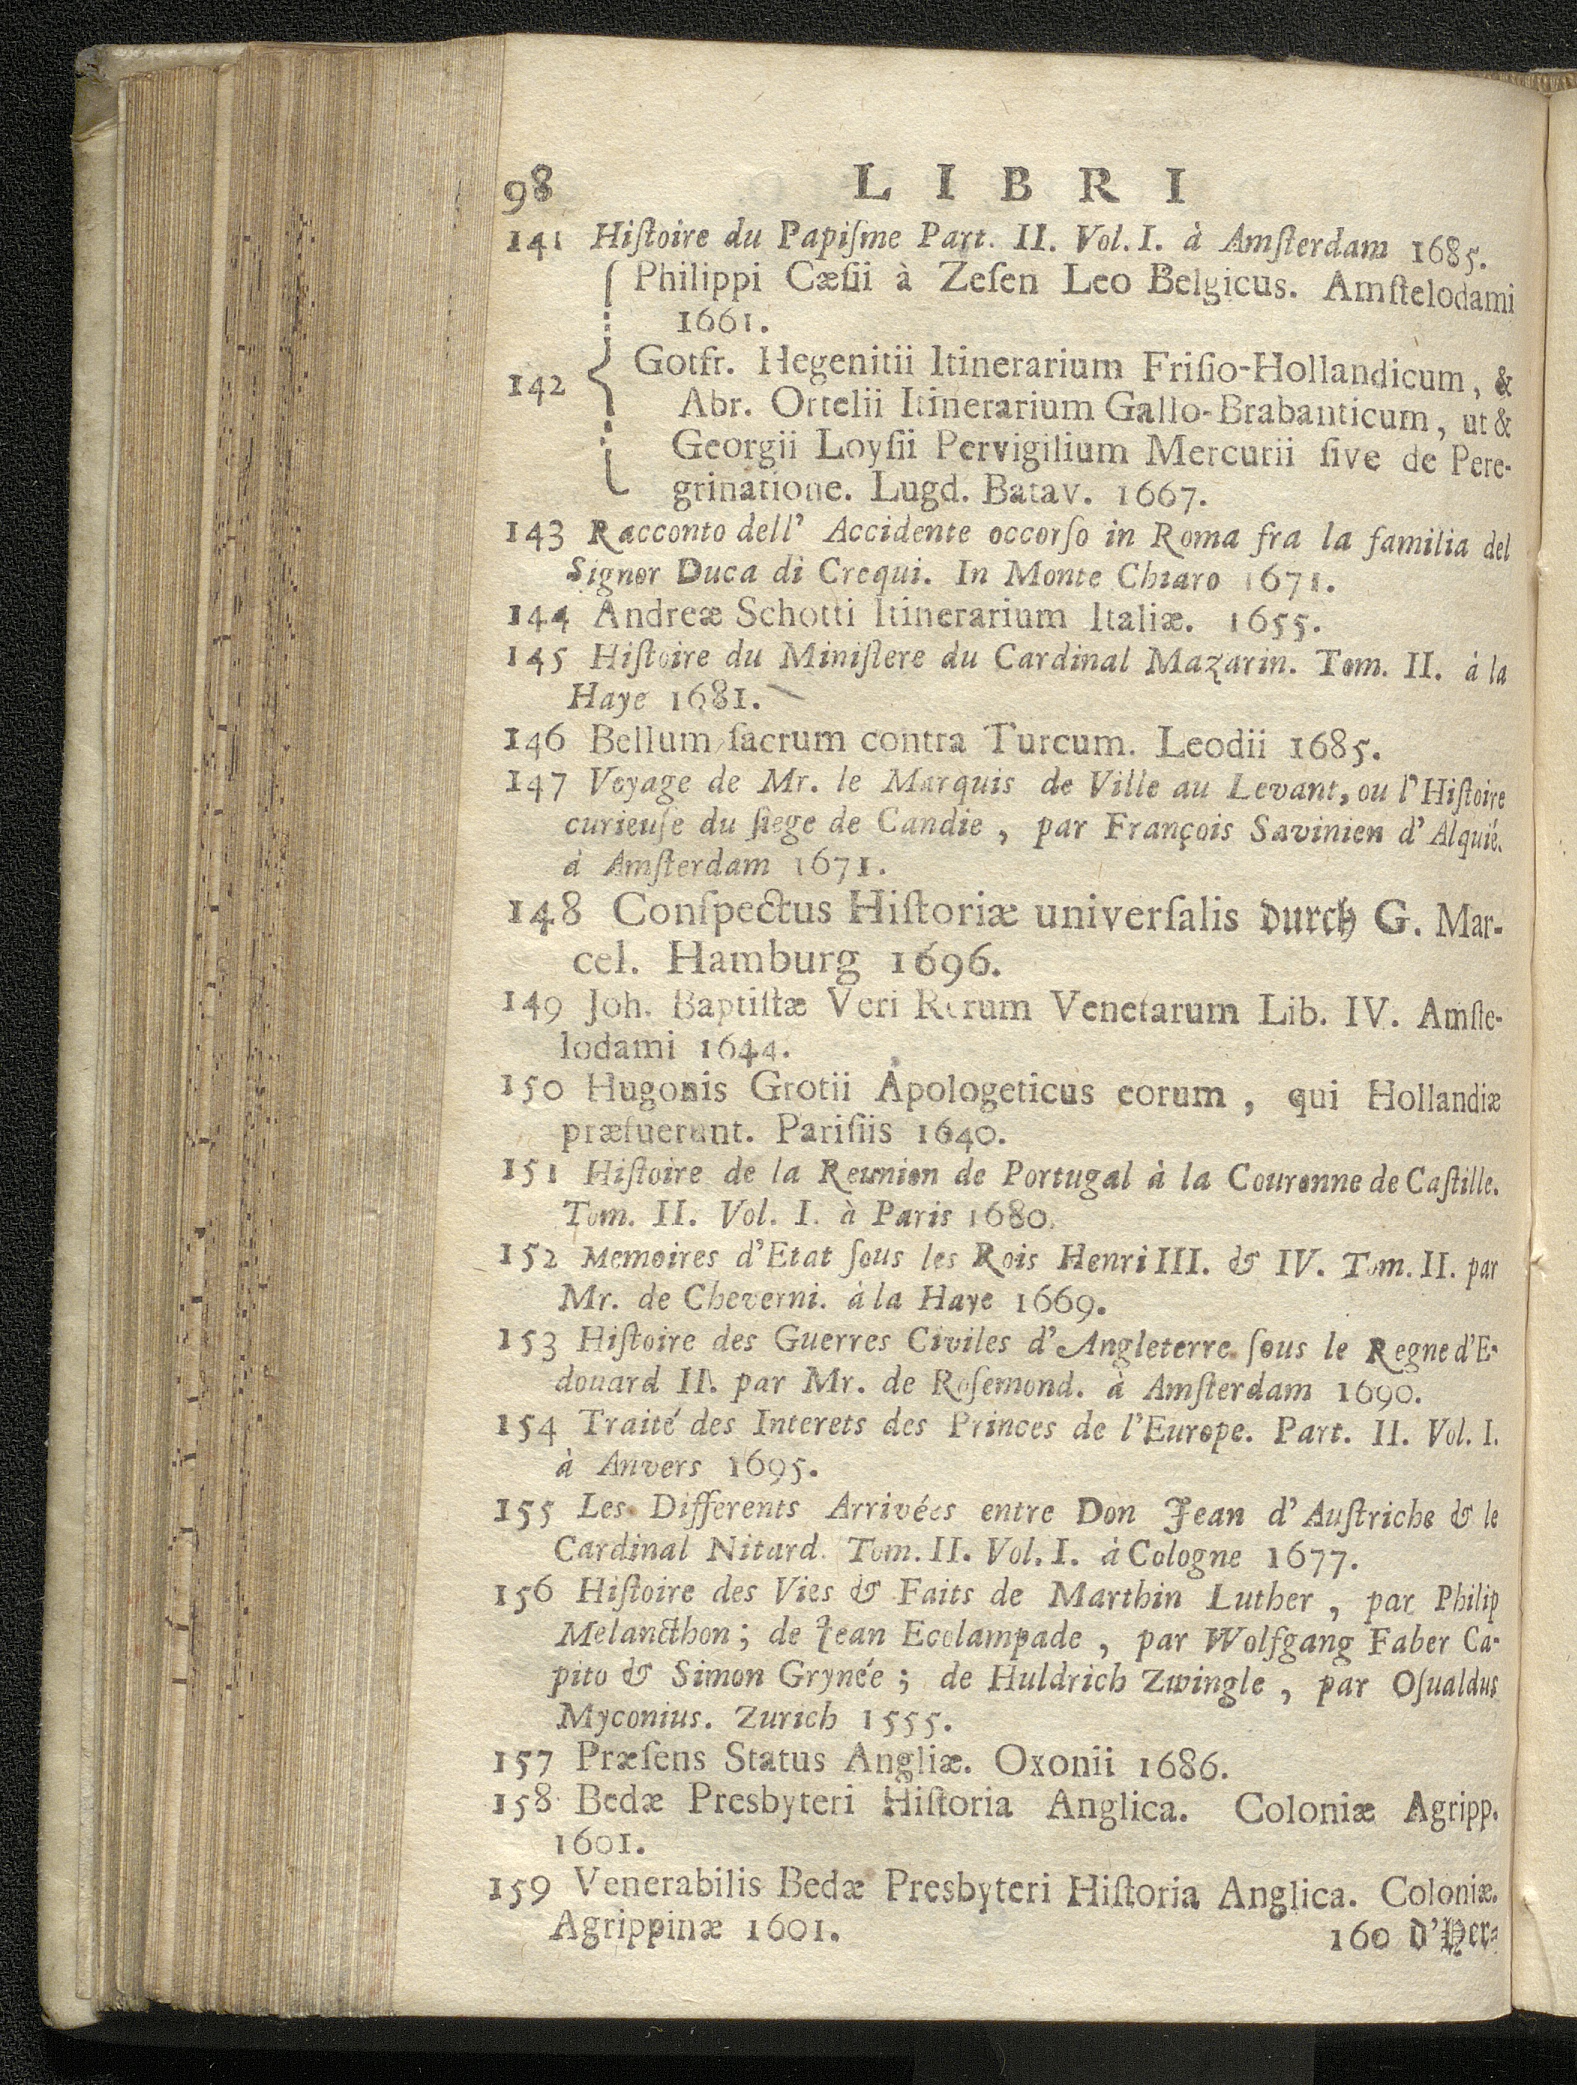 98 LIBRI
141 Hiſtoire du Papiſme Part. II. Vol. I. à Amſterdam 1685.
Philippi Cæſii à Zeſen Leo Belgicus. Amſtelodami
1661.
Gotfr. Hegenitii Itinerarium Friſio-Hollandicum, &
142 Abr. Ortelii Itinerarium Gallo-Brabanticum, ut &
Georgii Loyſii Pervigilium Mercurii ſive de Pere-
grinatione. Lugd. Batav. 1667.
143 Racconto dell' Accidente occorſo in Roma fra la familia del
Signor Duca di Crequi. In Monte Chiaro 1671.
144 Andreæ Schotti Itinerarium Italiæ. 1655.
145 Hiſtoire du Miniſtere du Cardinal Mazarin. Tom. II. à la
Haye 1681.
146 Bellum ſacrum contra Turcum. Leodii 1685.
147 Voyage de Mr. le Marquis de Ville au Levant, ou l'Hiſtoire
curieuſe du ſiege de Candie, par François Savinien d'Alquié.
à Amſterdam 1671.
148 Conſpectus Hiſtoriæ univerſalis durch G. Mar-
cel. Hamburg 1696.
149 Joh. Baptiſtæ Veri Rerum Venetarum Lib. IV. Amſte-
lodami 1644.
150 Hugonis Grotii Apologeticus eorum, qui Hollandiæ
præfuerunt. Pariſiis 1640.
151 Hiſtoire de la Reunion de Portugal à la Couronne de Caſtille.
Tom. II. Vol. I. à Paris 1680.
152 Memoires d'Etat ſous les Rois Henri III. & IV. Tom. II. par
Mr. de Cheverni. à la Haye 1669.
153 Hiſtoire des Guerres Civiles d'Angleterre ſous le Regne d'E-
douard II. par Mr. de Roſemond. à Amſterdam 1690.
154 Traité des Interets des Princes de l'Europe. Part. II. Vol. I.
à Anvers 1695.
155 Les Differents Arrivées entre Don Jean d'Auſtriche & le
Cardinal Nitard. Tom. II. Vol. I. à Cologne 1677.
156 Hiſtoire des Vies & Faits de Marthin Luther, par Philip
Melancthon; de Jean Ecolampade, par Wolfgang Faber Ca-
pito & Simon Grynée; de Huldrich Zwingle, par Oſualdus
Myconius. Zurich 1555.
157 Præſens Status Angliæ. Oxonii 1686.
158 Bedæ Presbyteri Hiſtoria Anglica. Coloniæ Agripp.
1601.
159 Venerabilis Bedæ Presbyteri Hiſtoria Anglica. Coloniæ.
Agrippinæ 1601.
160 d'Her-